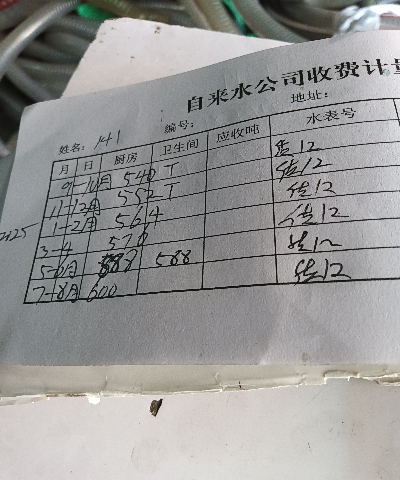 自来水公司收费计量
姓名: 141 编号: 地址:
月 日 厨房 卫生间 应收吨 水表号
9-10月 540 T 估12
11-12月 552 T 估12
2025 1-2月 564 估12
3-4 576 估12
5-6月 588 588 估12
7-8月 600 估12